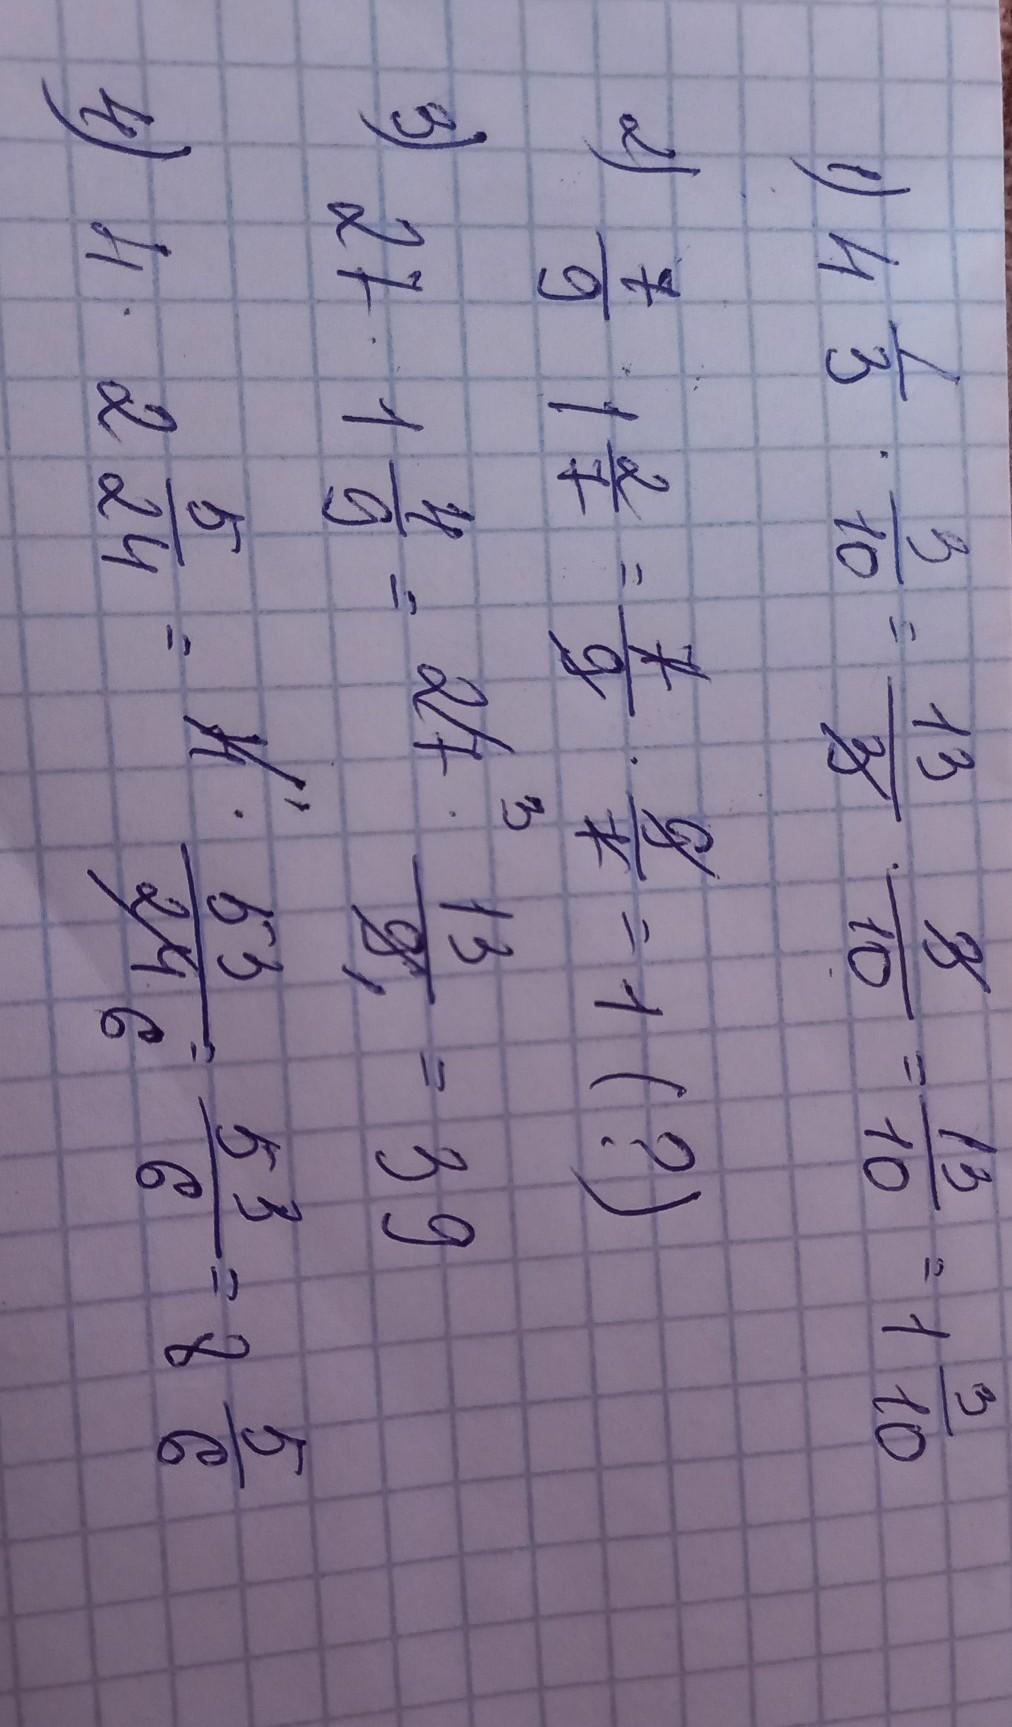 1) 4 1/3 · 3/10 = 13/3 · 3/10 = 13/10 = 1 3/10
2) 7/9 · 1 2/7 = 7/9 · 9/7 = 1 (?)
3) 27 · 1 4/9 = 27 3 · 13/9 1 = 39
4) 4 · 2 5/24 = 4 1 · 53/24 6 = 53/6 = 8 5/6